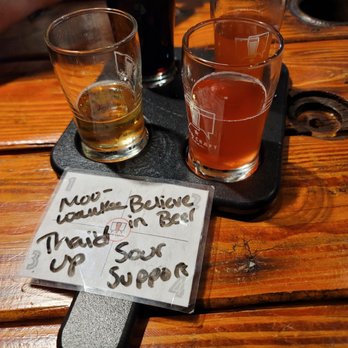 Moo-
waukee
Believe
in Beer
Thaid
up
Sour
Support